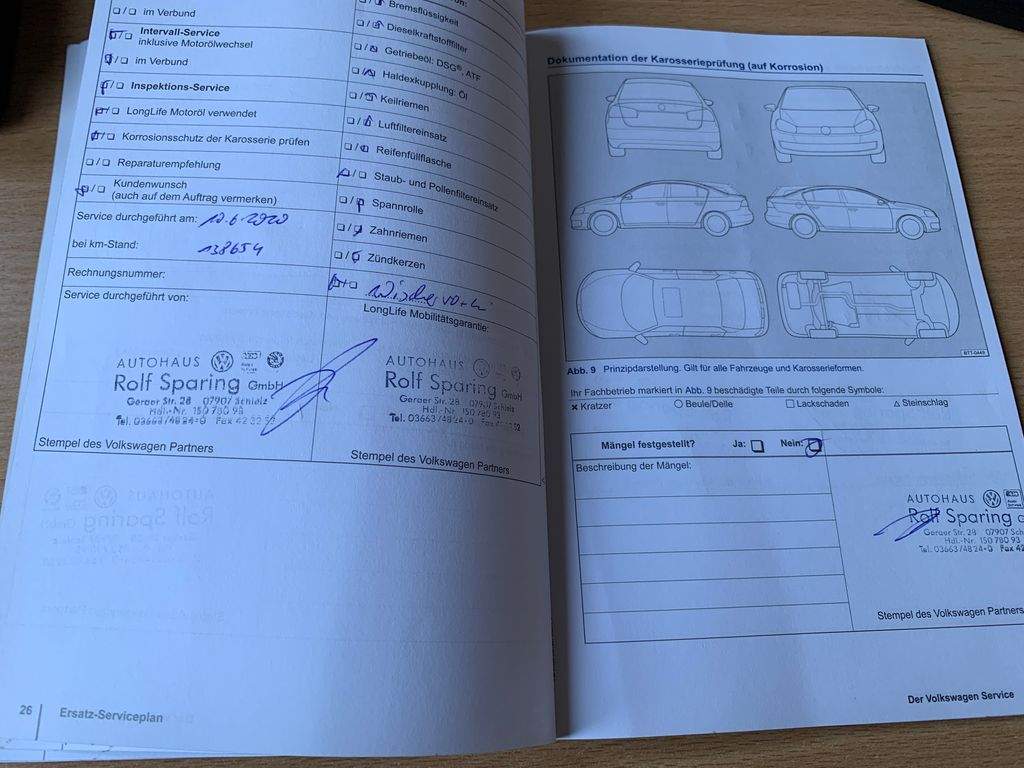 im Verbund
Intervall-Service
inklusive Motorölwechsel
im Verbund
Inspektions-Service
LongLife Motoröl verwendet
Korrosionsschutz der Karosserie prüfen
Reparaturempfehlung
Kundenwunsch
(auch auf dem Auftrag vermerken)
Service durchgeführt am:
bei km-Stand: 138654
Rechnungsnummer:
Service durchgeführt von:
AUTOHAUS
Rolf Sparing GmbH
Geraer Str. 28 07907 Schleiz
Hdl.-Nr. 150 780 93
Tel. 03663/4824-0 Fax 42 22 52
Stempel des Volkswagen Partners
Bremsflüssigkeit
Dieselkraftstofffilter
Getriebeöl: DSG®, ATF
Haldexkupplung: Öl
Keilriemen
Luftfiltereinsatz
Reifenfüllflasche
Staub- und Pollenfiltereinsatz
Spannrolle
Zahnriemen
Zündkerzen
Wischer vorn
LongLife Mobilitätsgarantie:
AUTOHAUS
Rolf Sparing GmbH
Geraer Str. 28 07907 Schleiz
Hdl.-Nr. 150 780 93
Tel. 03663/4824-0 Fax 42 22 52
Stempel des Volkswagen Partners
26 Ersatz-Serviceplan
Dokumentation der Karosserieprüfung (auf Korrosion)
BTT-0449
Abb. 9 Prinzipdarstellung. Gilt für alle Fahrzeuge und Karosserieformen.
Ihr Fachbetrieb markiert in Abb. 9 beschädigte Teile durch folgende Symbole:
× Kratzer ○ Beule/Delle □ Lackschaden △ Steinschlag
Mängel festgestellt? Ja: Nein:
Beschreibung der Mängel:
AUTOHAUS
Rolf Sparing G
Geraer Str. 28 07907 Sch
Hdl.-Nr. 150 780 93
Tel. 03663/4824-0 Fax 42
Stempel des Volkswagen Partners
Der Volkswagen Service